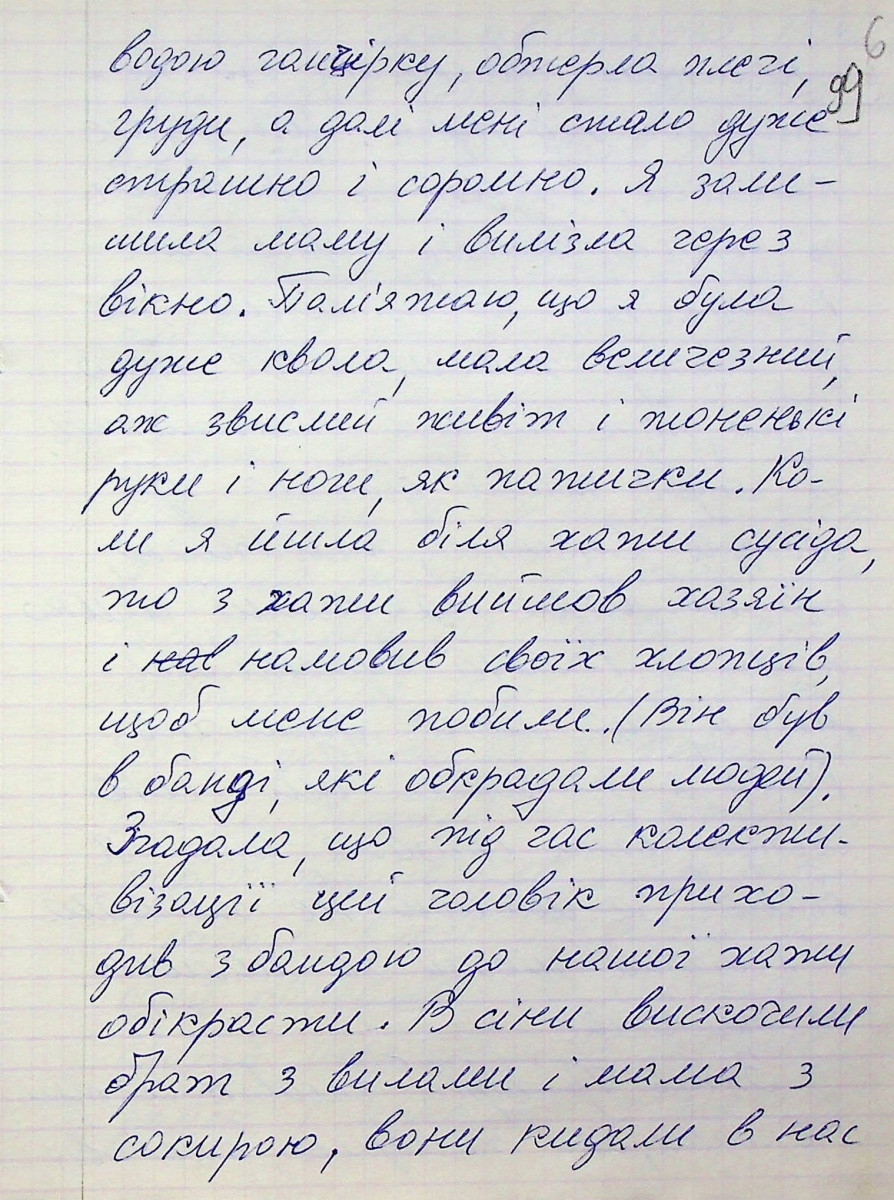 6
99
водою ганчірку, обтерла плечі,
груди, а далі мені стало дуже
страшно і соромно. Я зали-
шила маму і вилізла через
вікно. Пам'ятаю, що я була
дуже квола, мала величезний,
аж звислий живіт і тоненькі
руки і ноги, як патички. Ко-
ли я йшла біля хати сусіда,
то з хати вийшов хазяїн
і нав намовив своїх хлопців,
щоб мене побили. (Він був
в банді, які обкрадали людей).
Згадала, що під час колекти-
візації цей чоловік прихо-
див з бандою до нашої хати
обікрасти. В сіни вискочили
брат з вилами і мама з
сокирою, вони кидали в нас